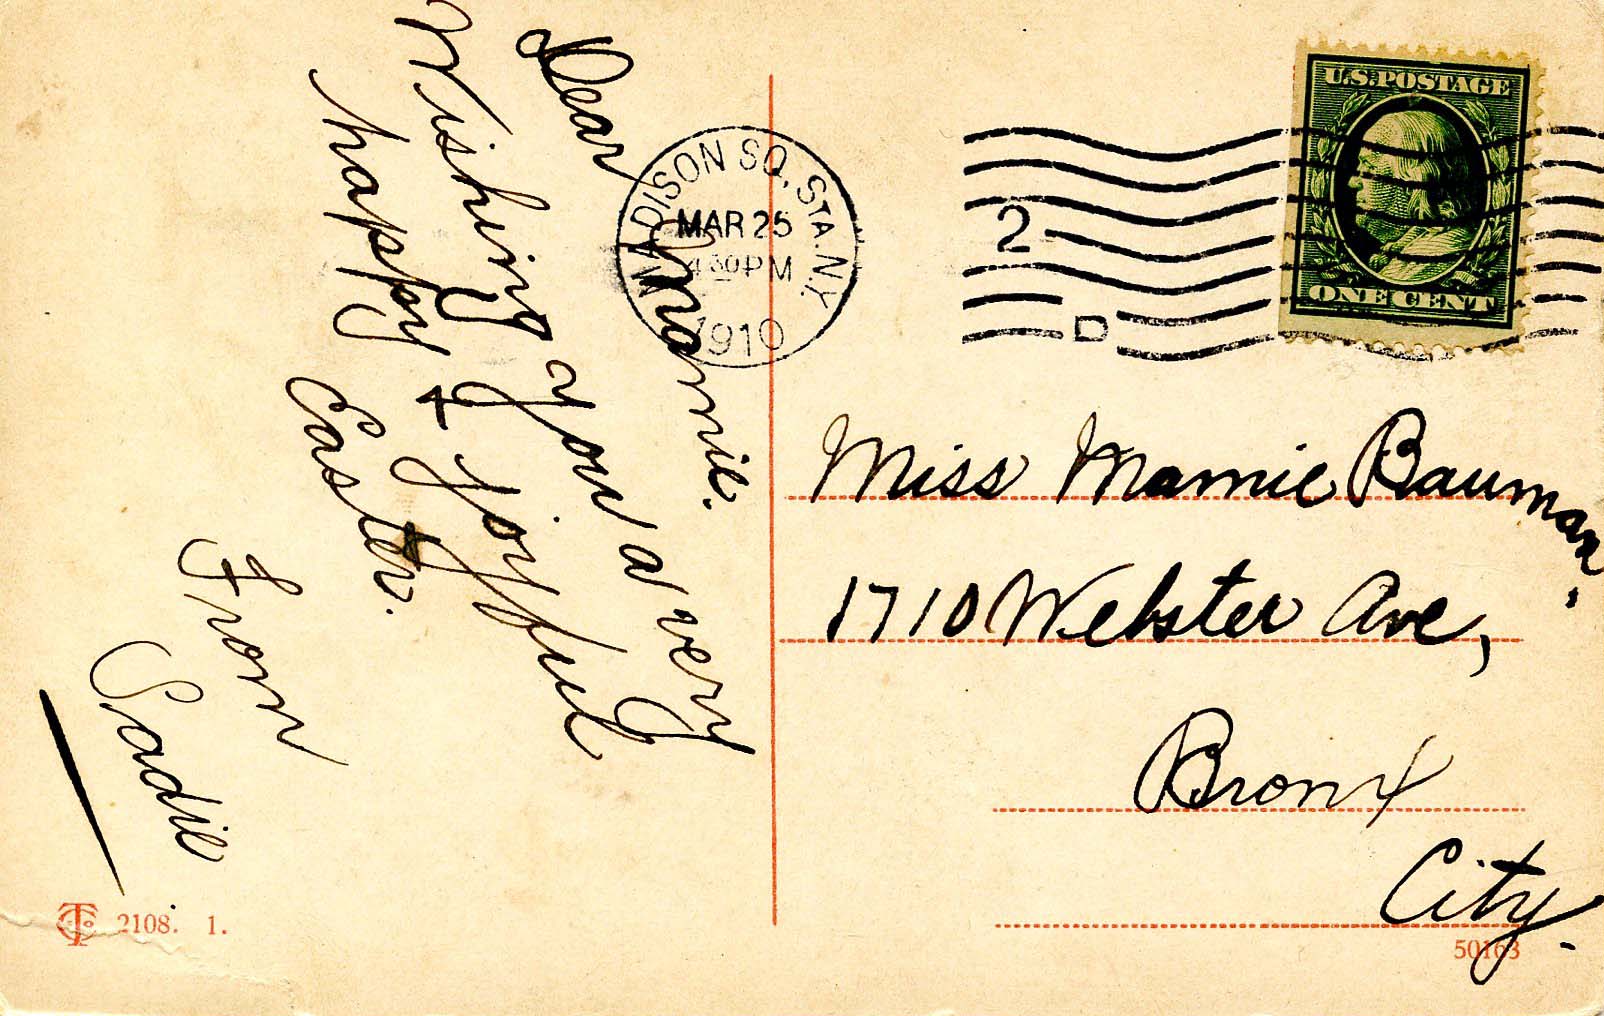 Dear Mamie.
Wishing you a very
happy & joyful
Easter.
From
Sadie
2108. 1.
MADISON SQ. STA. N.Y.
MAR 25
4 30 PM
1910
2
D
U.S. POSTAGE
ONE CENT
Miss Mamie Bauman.
1710 Webster Ave,
Bronx
City.
50163